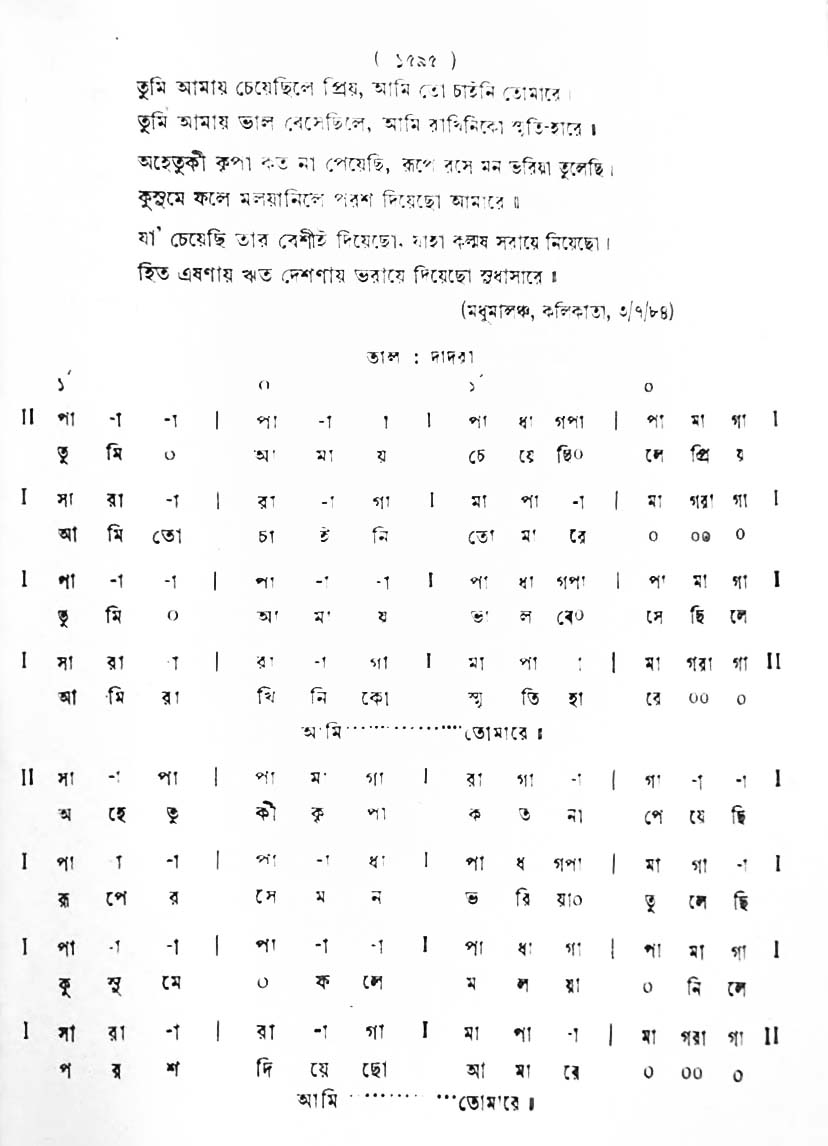 ( ১৫৯৫ )
তুমি আমায় চেয়েছিলে প্রিয়, আমি তো চাইনি তোমারে ।
তুমি আমায় ভাল বেসেছিলে, আমি রাখিনিকো স্মৃতি-হারে ॥
অহেতুকী কৃপা কত না পেয়েছি, রূপে রসে মন ভরিয়া তুলেছি ।
কুসুমে ফলে মলয়ানিলে পরশ দিয়েছো আমারে ॥
যা' চেয়েছি তার বেশীই দিয়েছো, যাহা কল্মষ সরায়ে নিয়েছো ।
হিত এষণায় ঋত দেশণায় ভরায়ে দিয়েছো সুধাসারে ॥
(মধুমালঞ্চ, কলিকাতা, ৩/৭/৮৪)
তাল : দাদরা
১´ ০ ১´ ০
II পা -া -া | পা -া া I পা ধা গপা | পা মা গা I
তু মি ০ আ মা য় চে য়ে ছি০ লে প্রি য়
I সা রা -া | রা -া গা I মা পা -া | মা গরা গা I
আ মি তো চা ই নি তো মা রে ০ ০০ ০
I পা -া -া | পা -া -া I পা ধা গপা | পা মা গা I
তু মি ০ আ মা য় ভা ল বে০ সে ছি লে
I সা রা -া | রা -া গা I মা পা : | মা গরা গা II
আ মি রা খি নি কো স্মৃ তি হা রে ০০ ০
আমি ·················· তোমারে ॥
II সা -া পা | পা মা গা I রা গা -া | গা -া -া I
অ হে তু কী কৃ পা ক ত না পে য়ে ছি
I পা া -া | পা -া ধা I পা ধ গপা | মা গা -া I
রূ পে র সে ম ন ভ রি য়া০ তু লে ছি
I পা -া -া | পা -া -া I পা ধা গা | পা মা গা I
কু সু মে ০ ফ লে ম ল য়া ০ নি লে
I সা রা -া | রা -া গা I মা পা -া | মা গরা গা II
প র শ দি য়ে ছো আ মা রে ০ ০০ ০
আমি ·············· তোমারে ॥